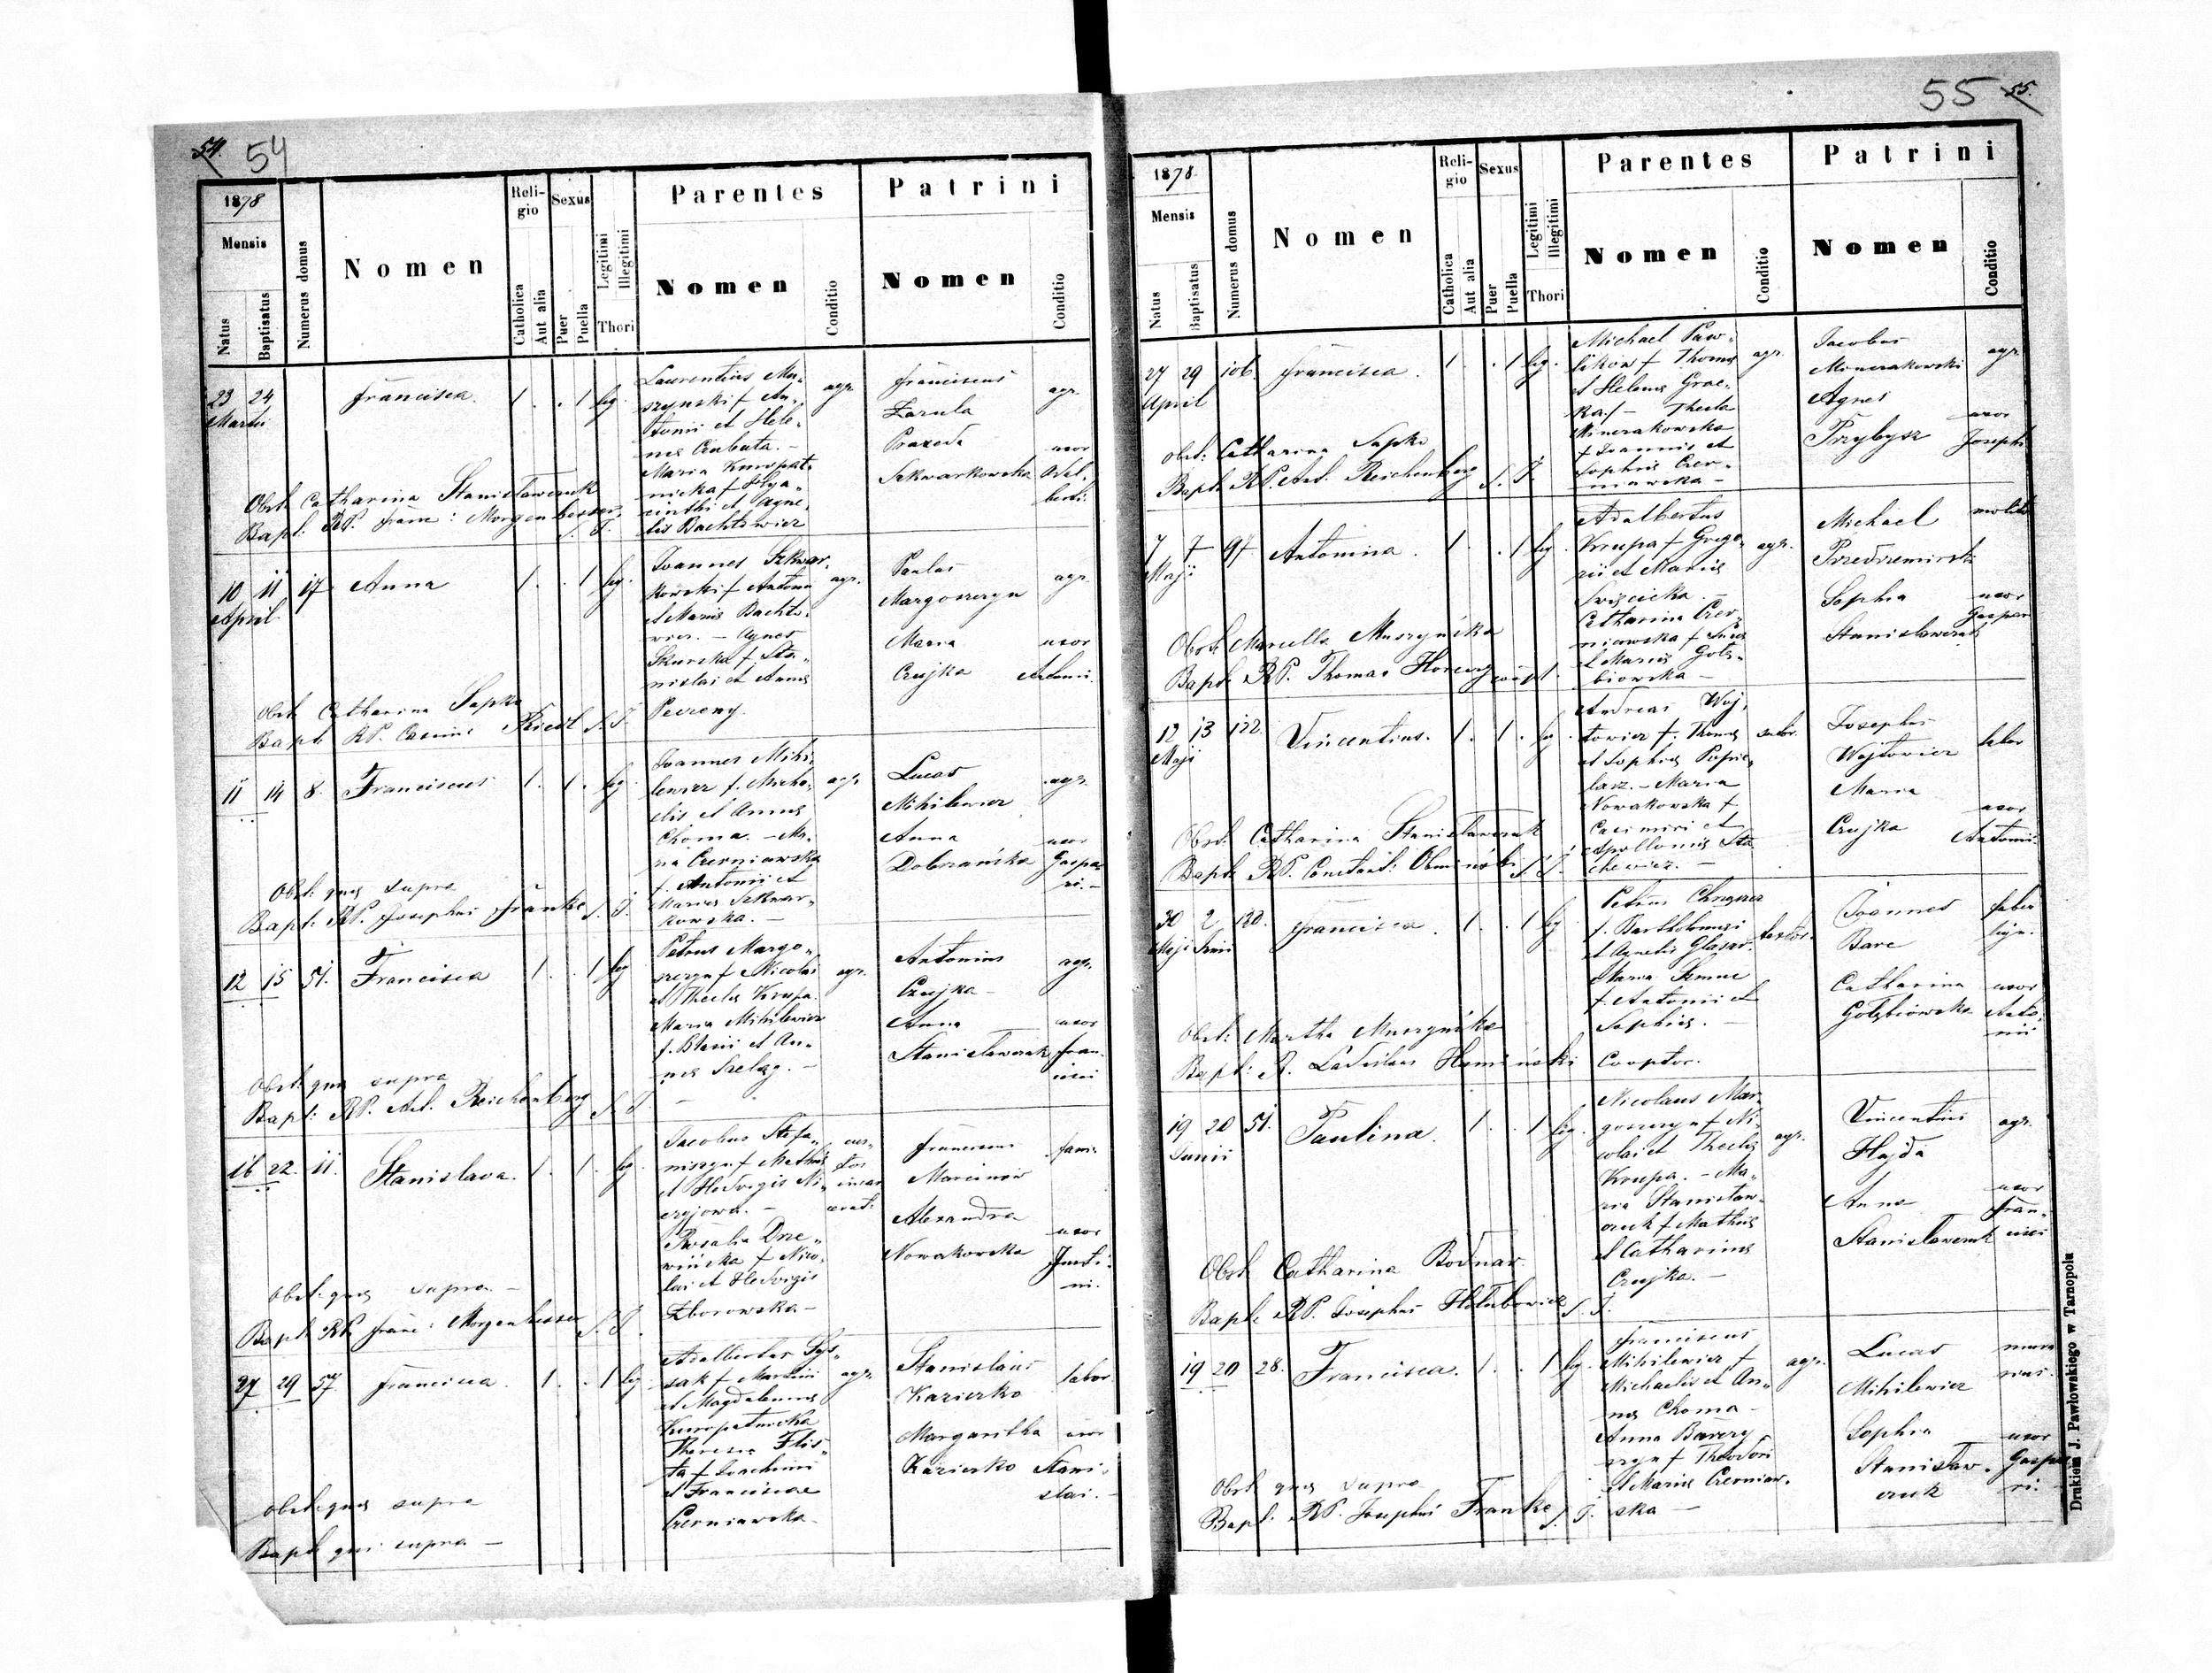 54. 54
1878
Mensis
Natus
Baptisatus
Numerus domus
Nomen
Religio
Catholica
Aut alia
Sexus
Puer
Puella
Legitimi
Illegitimi
Thori
Parentes
Nomen
Conditio
Patrini
Nomen
Conditio
23 24 Francisca. 1. . 1 leg.
Martii
Laurentius Mu-
szynski f. An-
tonii et Hele-
na
Maria Kuropat-
nicka f. Hya-
cinthi et Agne-
tis Bachtowicz
agr.
Franciscus
Zarula
Praxeda
Szkwarkowska
agr.
uxor
Adal-
berti.
Obst. Catharina Stanisławczuk
Bapt. RP. Franc: Morgenbesser S. J.
10 11 17 Anna 1. . 1 leg.
April
Joannes Szkwar-
kowski f. Antonii
et Maria Bachto-
wicz. - Agnes
Skurska f. Sta-
nislai et Anna
agr.
Paulus
Margoszczyn
Maria
Czujka
agr.
uxor
Antonii.
Obst. Catharina Sapka
Bapt. RP. Casimir Riedl S. J.
11 14 8. Franciscus 1. 1. leg.
Joannes Mihi-
lewicz f. Micha-
elis et Anna
Choma. - Ma-
ria Czerniawska
f. Antonii et
Maria Szkwar-
kowska. -
agr.
Lucas
Mihilewicz
Anna
Dobrzańska
agr.
uxor
Gaspa-
ri. -
Obst: quae supra
Bapt: RP. Josephus Franke S. J.
12 15 51. Francisca 1. . 1 leg
Petrus Margo-
szczyn f. Nicolai
et Thecla Krupa.
Maria Mihilewicz
f. Blasii et An-
na Szelag. -
agr.
Antonius
Czujka -
Anna
Stanisławczuk
agr.
uxor
Fran-
cisci
Obst: quae supra
Bapt: RP. Ant. Reichenberg S. J.
16 22. 11. Stanislava. 1. 1. leg
Jacobus Stefa-
niszyn f. Mathiae
et Hedvigis Ni-
Rosalia Drze-
wińska f. Nico-
lai et Hedvigis
Zborowska -
cus-
tos
incar-
cerat.
Franciscus
Marcinów
Alexandra
Nowakowska
fam.
uxor
Justi-
ni.
Obst: quae supra. -
Bapt. RP. Franc: Morgenbesser S. J.
27 29 57 Francisca. 1. . 1 leg.
Adalbertus
f. Martini
et Magdalena
Kuropatnicka
Theresia Flis-
ta f. Joachimi
et Franciscae
Czerniawska
agr.
Stanislaus
Kazierko
Margaritha
Kazierko
labor.
uxor
Stani-
slai. -
Obst: quae supra
Bapt. qui supra -
55 55.
1878.
Mensis
Natus
Baptisatus
Numerus domus
Nomen
Religio
Catholica
Aut alia
Sexus
Puer
Puella
Legitimi
Illegitimi
Thori
Parentes
Nomen
Conditio
Patrini
Nomen
Conditio
27 29 106. Francisca. 1. . 1 leg.
April
Michael Paw-
likow f. Thoma
et Helena Grac-
ka / - Thecla
Minczakowska
f. Joannis et
Sophia Czer-
niawska -
agr.
Jacobus
Monczakowski
Agnes
Przybysz
agr.
uxor
Josephi
Obst: Catharina Sapka
Bapt. RP. Ant. Reichenberg S. J.
7 7 97 Antonina. 1. . 1 leg.
Maji
Adalbertus
Krupa f. Grego-
rii et Maria
Swięcicka. -
Catharina Czer-
niawska f.
et Maria Gołę-
biowska -
agr.
Michael
Przedrzemirski
Sophia
Stanisławczuk
uxor
Gaspari
Obst. Marcella Muszyńska
Bapt. RP. Thomas
12 13 122. Vincentius. 1. 1. leg.
Maji
Andreas Woj-
towicz f. Thoma
et Sophia Popie-
larz. - Maria
Nowakowska f.
Casimiri et
Apollonia Sta-
chewicz. -
Josephus
Wojtowicz
Maria
Czujka
labor
uxor
Antonii.
Obst. Catharina Stanisławczuk
Bapt. RP. Constant: Obmiński S. J.
30 2 120. Francisca. 1. . 1 leg
Maji Junii
Petrus
f. Bartholomaei
et Agnetis Glazar.
Maria
f. Antonii et
Sophia. -
Joannes
Barc
Catharina
Gołębiowska
faber
lign.
uxor
Anto-
nii
Obst: Martha Muszyńska
Bapt: R. Ladislaus Cooptor.
19 20 51. Paulina. 1. . 1 leg.
Junii
Nicolaus Mar-
goszczyn f. Ni-
colai et Thecla
Krupa. - Ma-
ria Stanisław-
czuk f. Mathiae
et Catharina
Czujka. -
agr.
Vincentius
Hajda
Anna
Stanisławczuk
agr.
uxor
Fran-
cisci
Obst. Catharina Bodnar.
Bapt. RP. Josephus Hołubowicz S. J.
19 20 28. Francisca. 1. . 1 leg.
Franciscus
Mihilewicz f.
Michaelis et An-
na Choma -
Anna
f. Theodori
et Maria Czerniaw-
ska -
agr.
Lucas
Mihilewicz
Sophia
Stanisław-
czuk
uxor
Gaspa-
ri.
Obst. quae supra
Bapt. RP. Josephus Franke S. J.
Drukiem J. Pawłowskiego w Tarnopolu